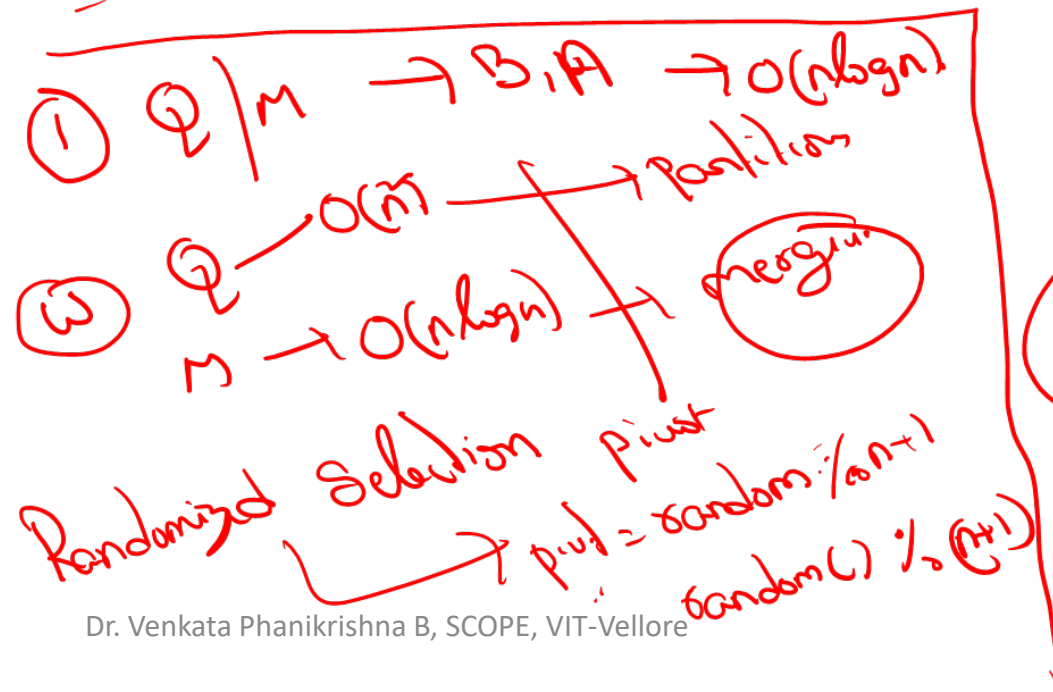 ① Q | M → B, A → O(nlogn)
Q — O(n²) → partition
Ⓦ
M → O(nlogn) → merging
Randomized Selection pivot
pivot = random % n+1
random() % (n+1)
Dr. Venkata Phanikrishna B, SCOPE, VIT-Vellore